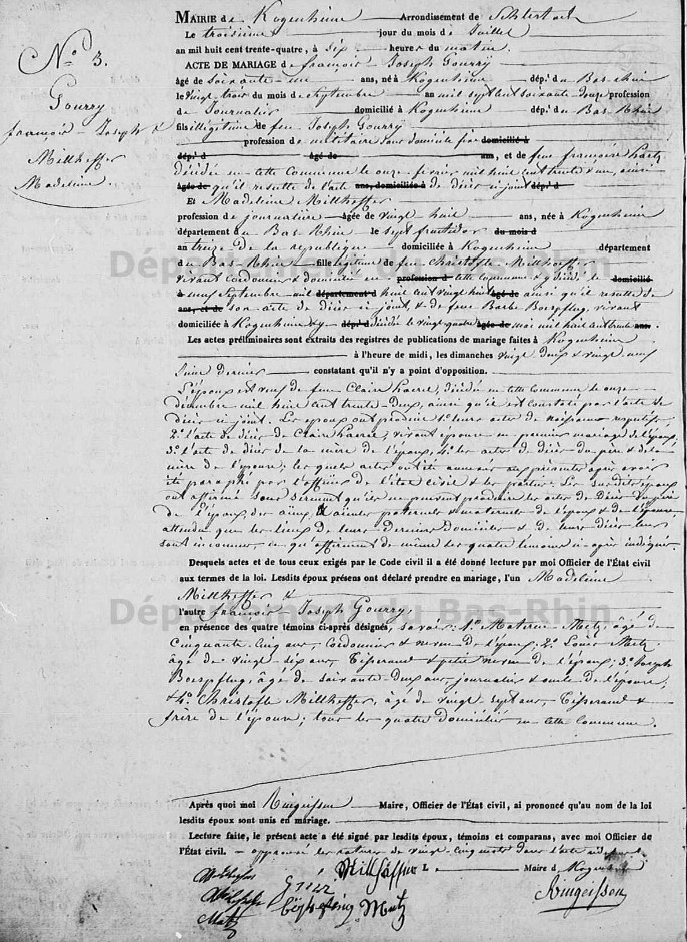 N.o 3.
Gourry
françois-Joseph &
Millheffer
Madeleine.
MAIRIE de Kogenheim Arrondissement de Schlestadt
Le troisième jour du mois de Juillet
an mil huit cent trente-quatre, à six heures du matin.
ACTE DE MARIAGE de françois Joseph Gourry
âgé de soixante-une ans, né à Kogenheim dép.t du Bas-rhin
le vingt trois du mois de septembre an mil sept cent soixante douze profession
de Journalier domicilié à Kogenheim dép.t du Bas Rhin
fils illégitime de feu Joseph Gourry
profession de militaire sans domicile fixe domicilié à
dép.t d âgé de ans, et de feue françoise
décédée en cette Commune le onze fevrier mil huit cent trente & un, ainsi
âgée de qu'il resulte de l'acte ans, domiciliée à de décès ci joint dép.t d
Et Madeleine Millheffer
profession de journalière âgée de vingt huit ans, née à Kogenheim
département du Bas-Rhin le sept fructidor du mois d
an treize de la republique domiciliée à Kogenheim département
du Bas-Rhin fille légitime de feu Christofle Millheffer
vivant cordonnier & domicilié en profession d cette commune & y décédé le domicilié
à neuf Septembre mil département d huit cent vingt huit âgé de ainsi qu'il resulte de
ans, et de son acte de décès ci joint, & de feue Barbe Boespflug, vivant
domiciliée à Kogenheim & y dép.t d décédée le vingt-quatre âgée de mai mil huit cent trente ans.
Les actes préliminaires sont extraits des registres de publications de mariage faites à Kogenheim
à l'heure de midi, les dimanches vingt deux & vingt neuf
Juin dernier constatant qu'il n'y a point d'opposition.
L'époux est veuf de feue Claire, décédée en cette Commune le onze
décembre mil huit cent trente-deux, ainsi qu'il est constaté par l'acte de
décès ci joint. Les époux ont produit 1.o leurs actes de naissance respectifs
2.o l'acte de décès de Claire, vivant épouse en premier mariage de l'époux,
3.o l'acte de décès de la mère de l'époux, 4.o les actes de décès du père & de la
mère de l'épouse; les quels actes ont été annexés aux présentes après avoir
été paraphé par l'officier de l'état civil & les parties. Les susdits époux
ont affirmé sous serment qu'ils ne peuvent produire les actes de Décès du père
de l'époux, des aïeux & aïeules paternels & maternels de l'époux & de l'épouse
attendu que les lieux de leurs derniers domiciles & de leurs décès leur
sont inconnus, ce qu'affirment de même les quatre témoins ci-après indiqués.
Desquels actes et de tous ceux exigés par le Code civil il a été donné lecture par moi Officier de l'État civil
aux termes de la loi. Lesdits époux présens ont déclaré prendre en mariage, l'un Madeleine
Millheffer &
l'autre françois Joseph Gourry,
en présence des quatre témoins ci-après désignés, savoir: 1.o Materne Metz, âgé de
Cinquante Cinq ans, Cordonnier & neveu de l'époux; 2.o Louis Metz
âgé de vingt six ans, Tisserand & petit neveu de l'époux; 3.o Joseph
Boespflug, âgé de soixante-deux ans, journalier & oncle de l'épouse;
& 4.o Christofle Millheffer, âgé de vingt-sept ans, Tisserand &
frère de l'épouse; tous les quatre domiciliés en cette Commune.
Après quoi moi Ringeissen Maire, Officier de l'État civil, ai prononcé qu'au nom de la loi
lesdits époux sont unis en mariage.
Lecture faite, le présent acte a été signé par lesdits époux, témoins et comparans, avec moi Officier de
l'État civil. approuvé les ratures de vingt-cinq mots dans l'acte
Maire d Kogenheim
Metz
Metz
Ringeissen
Département du Bas-Rhin
Département du Bas-Rhin